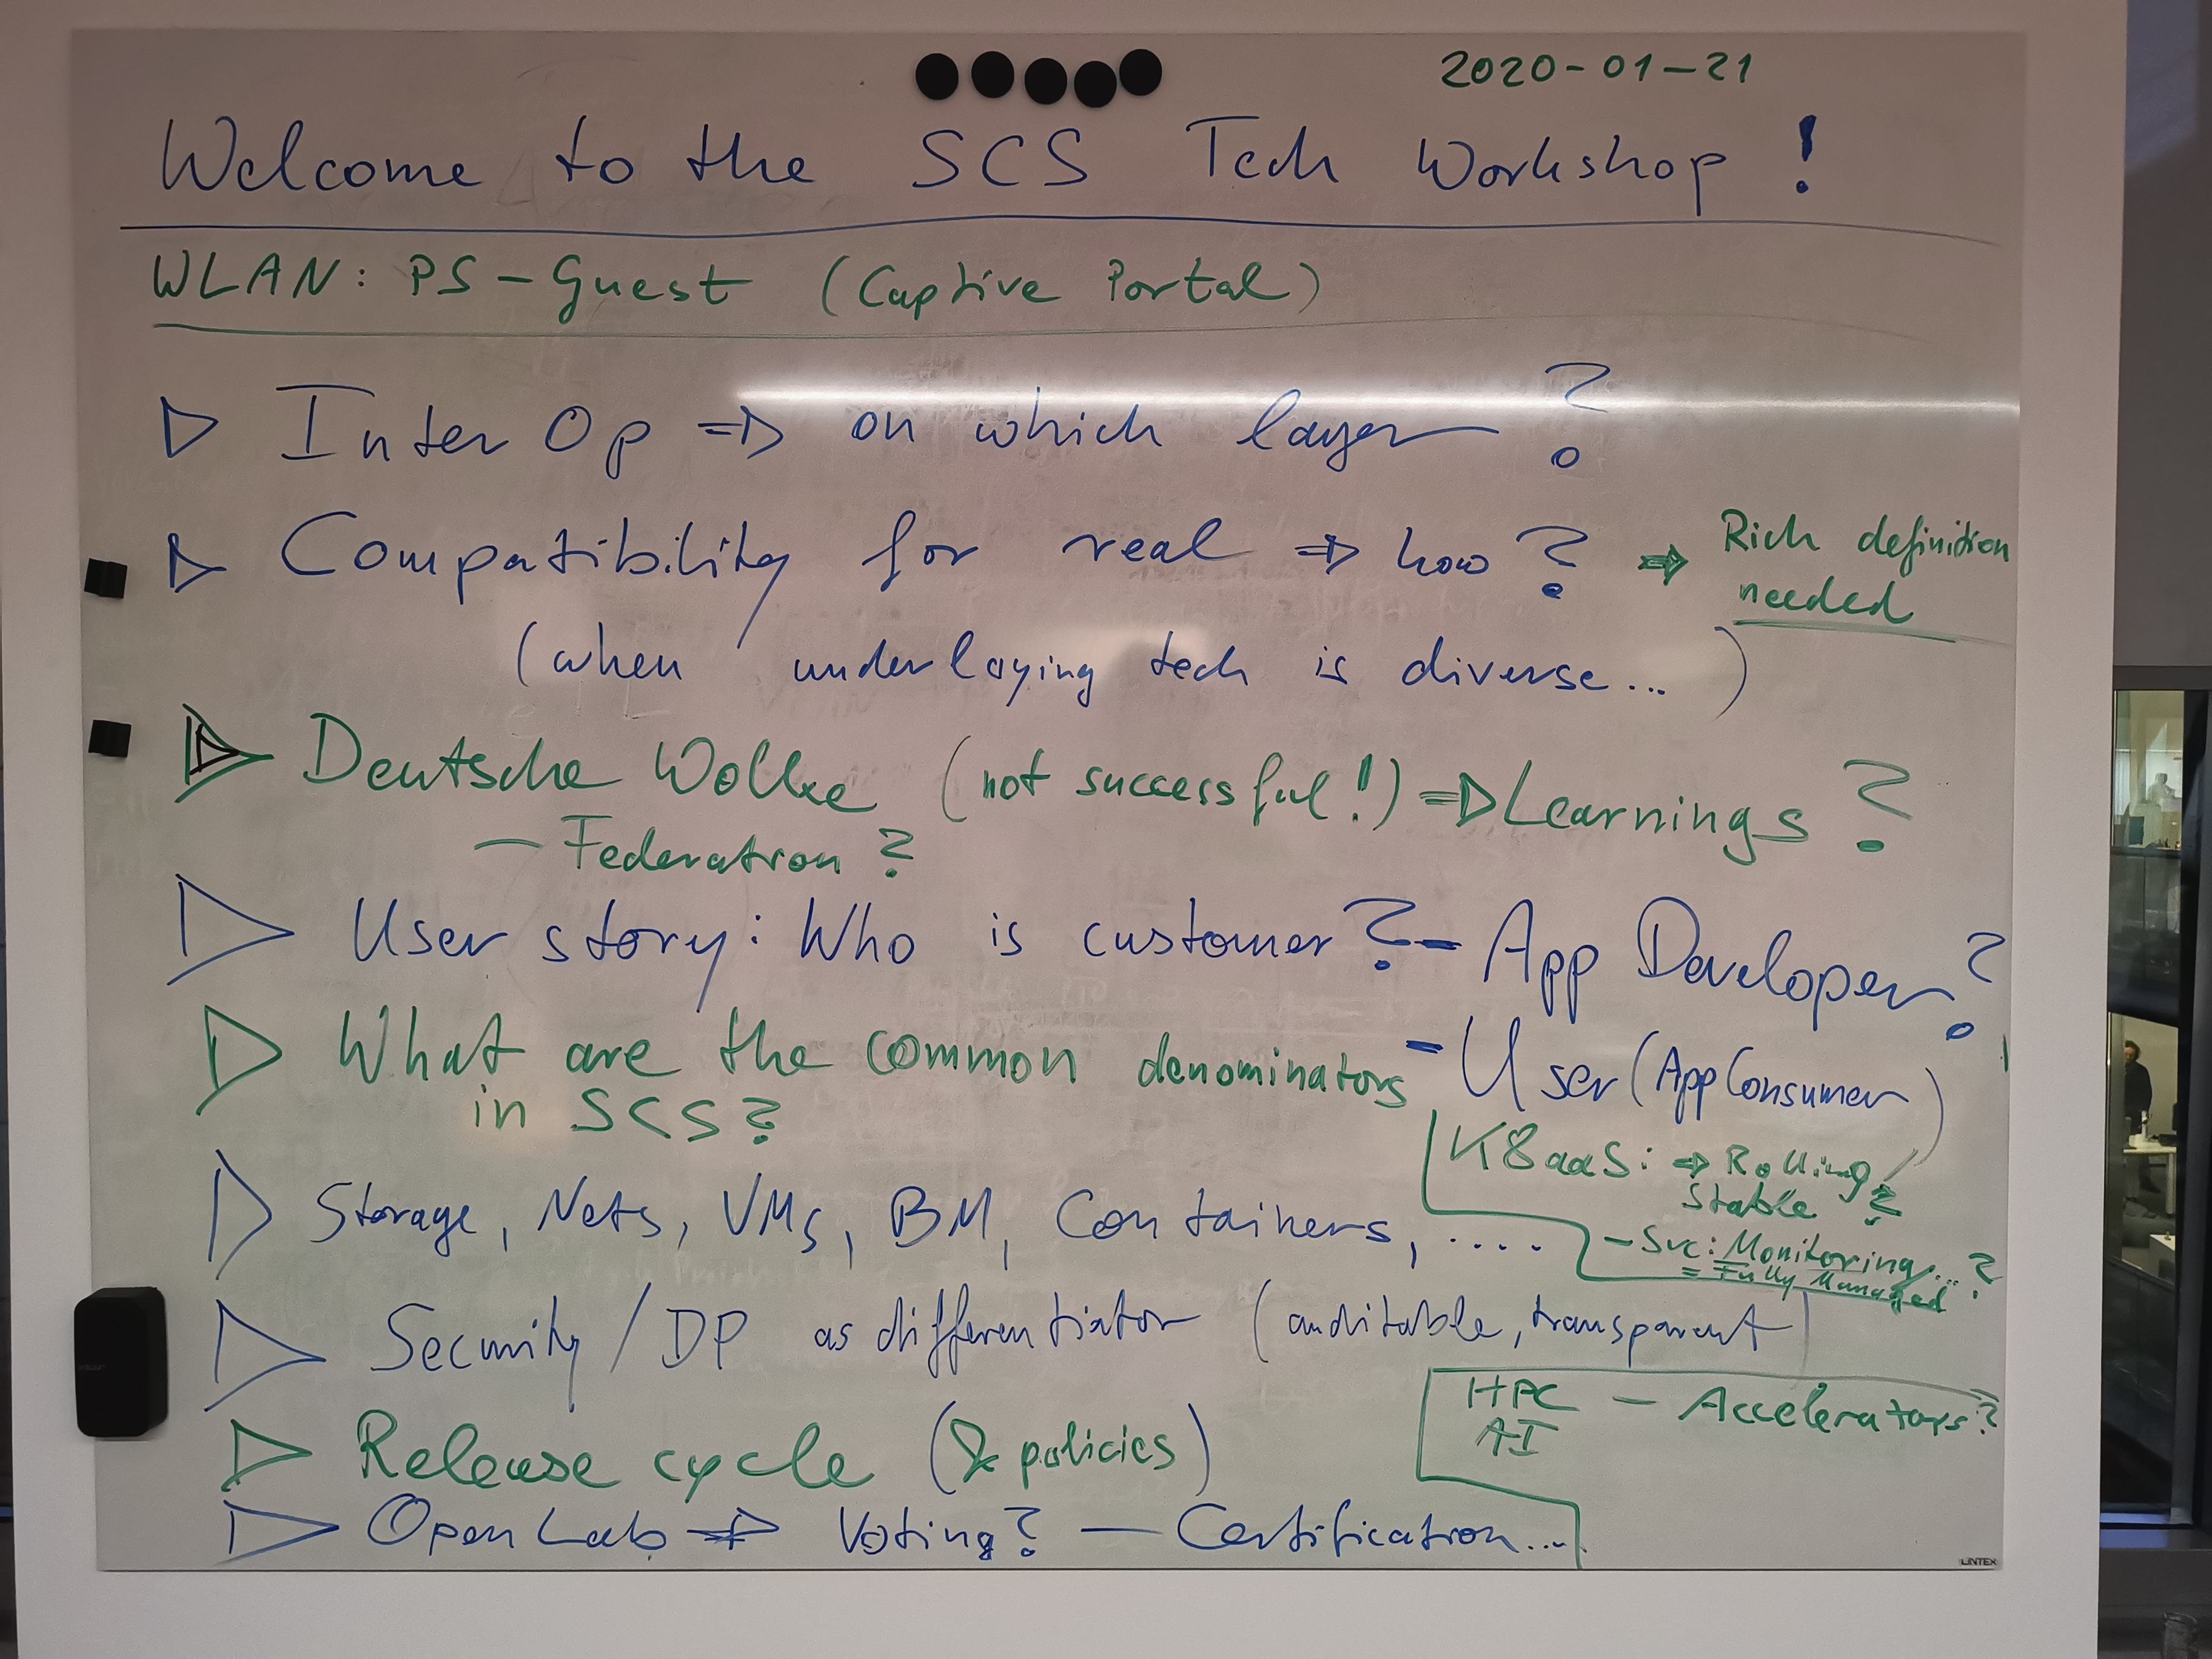 2020-01-21
Welcome to the SCS Tech Workshop!
WLAN: PS-Guest (Captive Portal)
▷ InterOp ⇒ on which layer?
▷ Compatibility for real ⇒ how? ⇒ Rich definition
needed
(when underlaying tech is diverse...)
▷ Deutsche Wolke (not successful!) ⇒ Learnings?
- Federation?
▷ User story: Who is customer? - App Developer?
- User (App Consumer)
▷ What are the common denominators
in SCS?
K8aaS: ⇒ Rolling/
Stable?
▷ Storage, Nets, VMs, BM, Containers, ....
- Svc: Monitoring...?
= Fully Managed
▷ Security/DP as differentiator (auditable, transparent)
HPC - Accelerators?
AI
▷ Release cycle (& policies)
▷ Open Lab ⇒ Voting? - Certification...
LINTEX